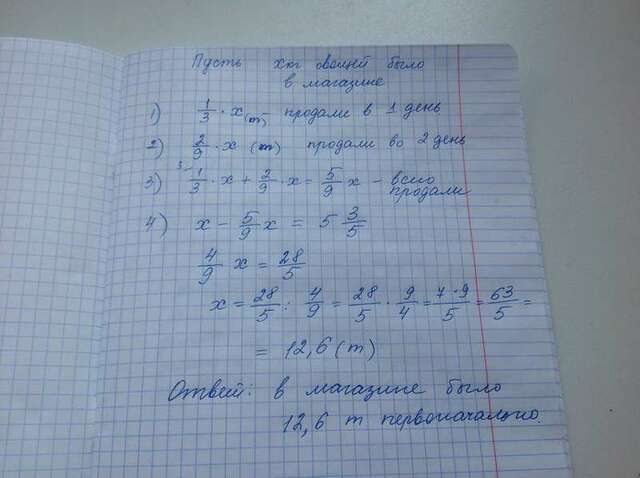 Пусть х кг овощей было
в магазине
1) 1/3 · x (т) - продали в 1 день
2) 2/9 · x (т) продали во 2 день
3) 3 1/3 · x + 2/9 · x = 5/9 x - всего
продали
4) x - 5/9 x = 5 3/5
4/9 x = 28/5
x = 28/5 : 4/9 = 28/5 · 9/4 = 7·9/5 = 63/5 =
= 12,6 (т)
Ответ: в магазине было
12,6 т первоначально.